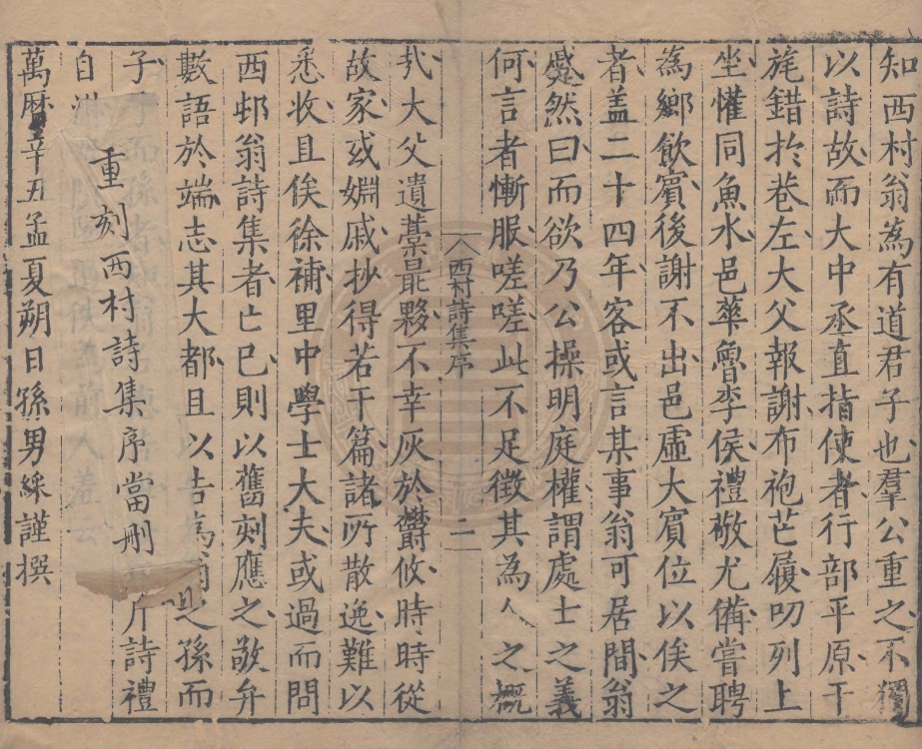 知西村翁為有道君子也羣公重之不獨
以詩故而大中丞直指使者行部平原干
旄錯扵巷左大父報謝布袍芒履叨列上
坐懽同魚水邑藂魯李侯禮敬尤備嘗聘
為鄉飲賓後謝不出邑虛大賓位以俟之
者盖二十四年客或言某事翁可居間翁
蹙然曰而欲乃公操明庭權謂處士之義
何言者慚服嗟嗟此不足徵其為人之槪
西村詩集序
二
我大父遺藁最夥不幸灰於鬱攸時時從
故家或姻戚抄得若干篇諸所散逸難以
悉收且俟徐補里中學士大夫或過而問
西邨翁詩集者亡已則以舊刻應之敬弁
數語於端志其大都且以告為之孫而
子
斤詩禮
重刻西村詩集序當刪
自
萬曆辛丑孟夏朔日孫男綵謹撰